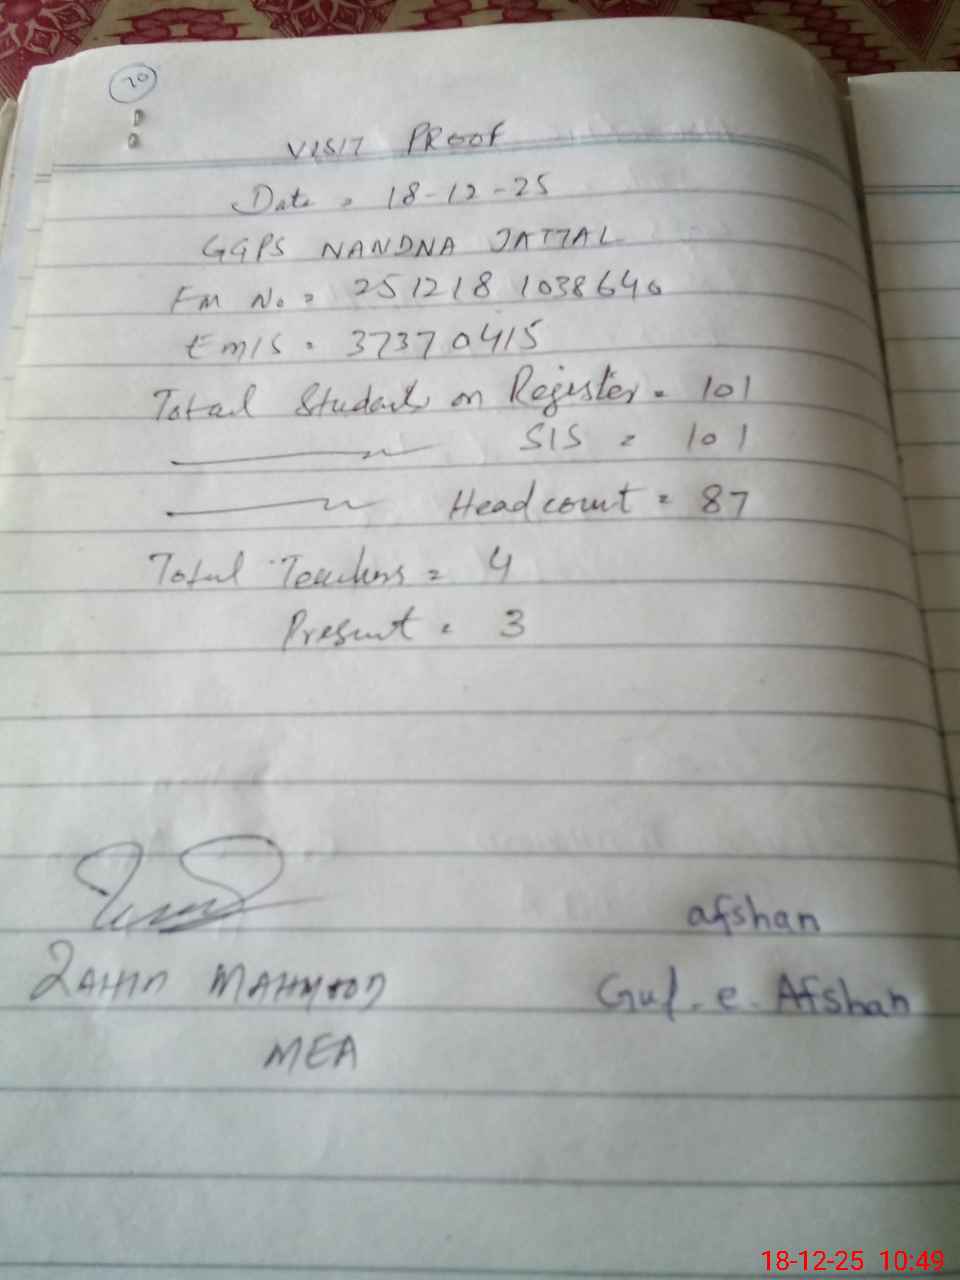 20
VISIT PROOF
Date = 18-12-25
GGPS NANDNA JATTAL
Fm No = 251218 1038640
EMIS = 37370415
Total Students on Register = 101
SIS = 101
Headcount = 87
Total Teachers = 4
Present = 3
afshan
ZAHID MAHMOOD
Gul-e-Afshan
MEA
18-12-25 10:49